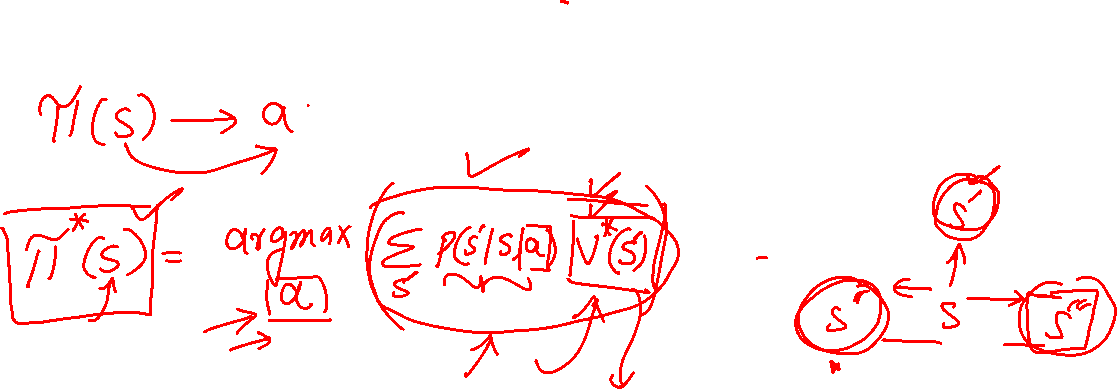 π(s) → a
π*(s) = argmax a Σ s' P(s'|s,a) V*(s')
s'
s'' ← s → s'''